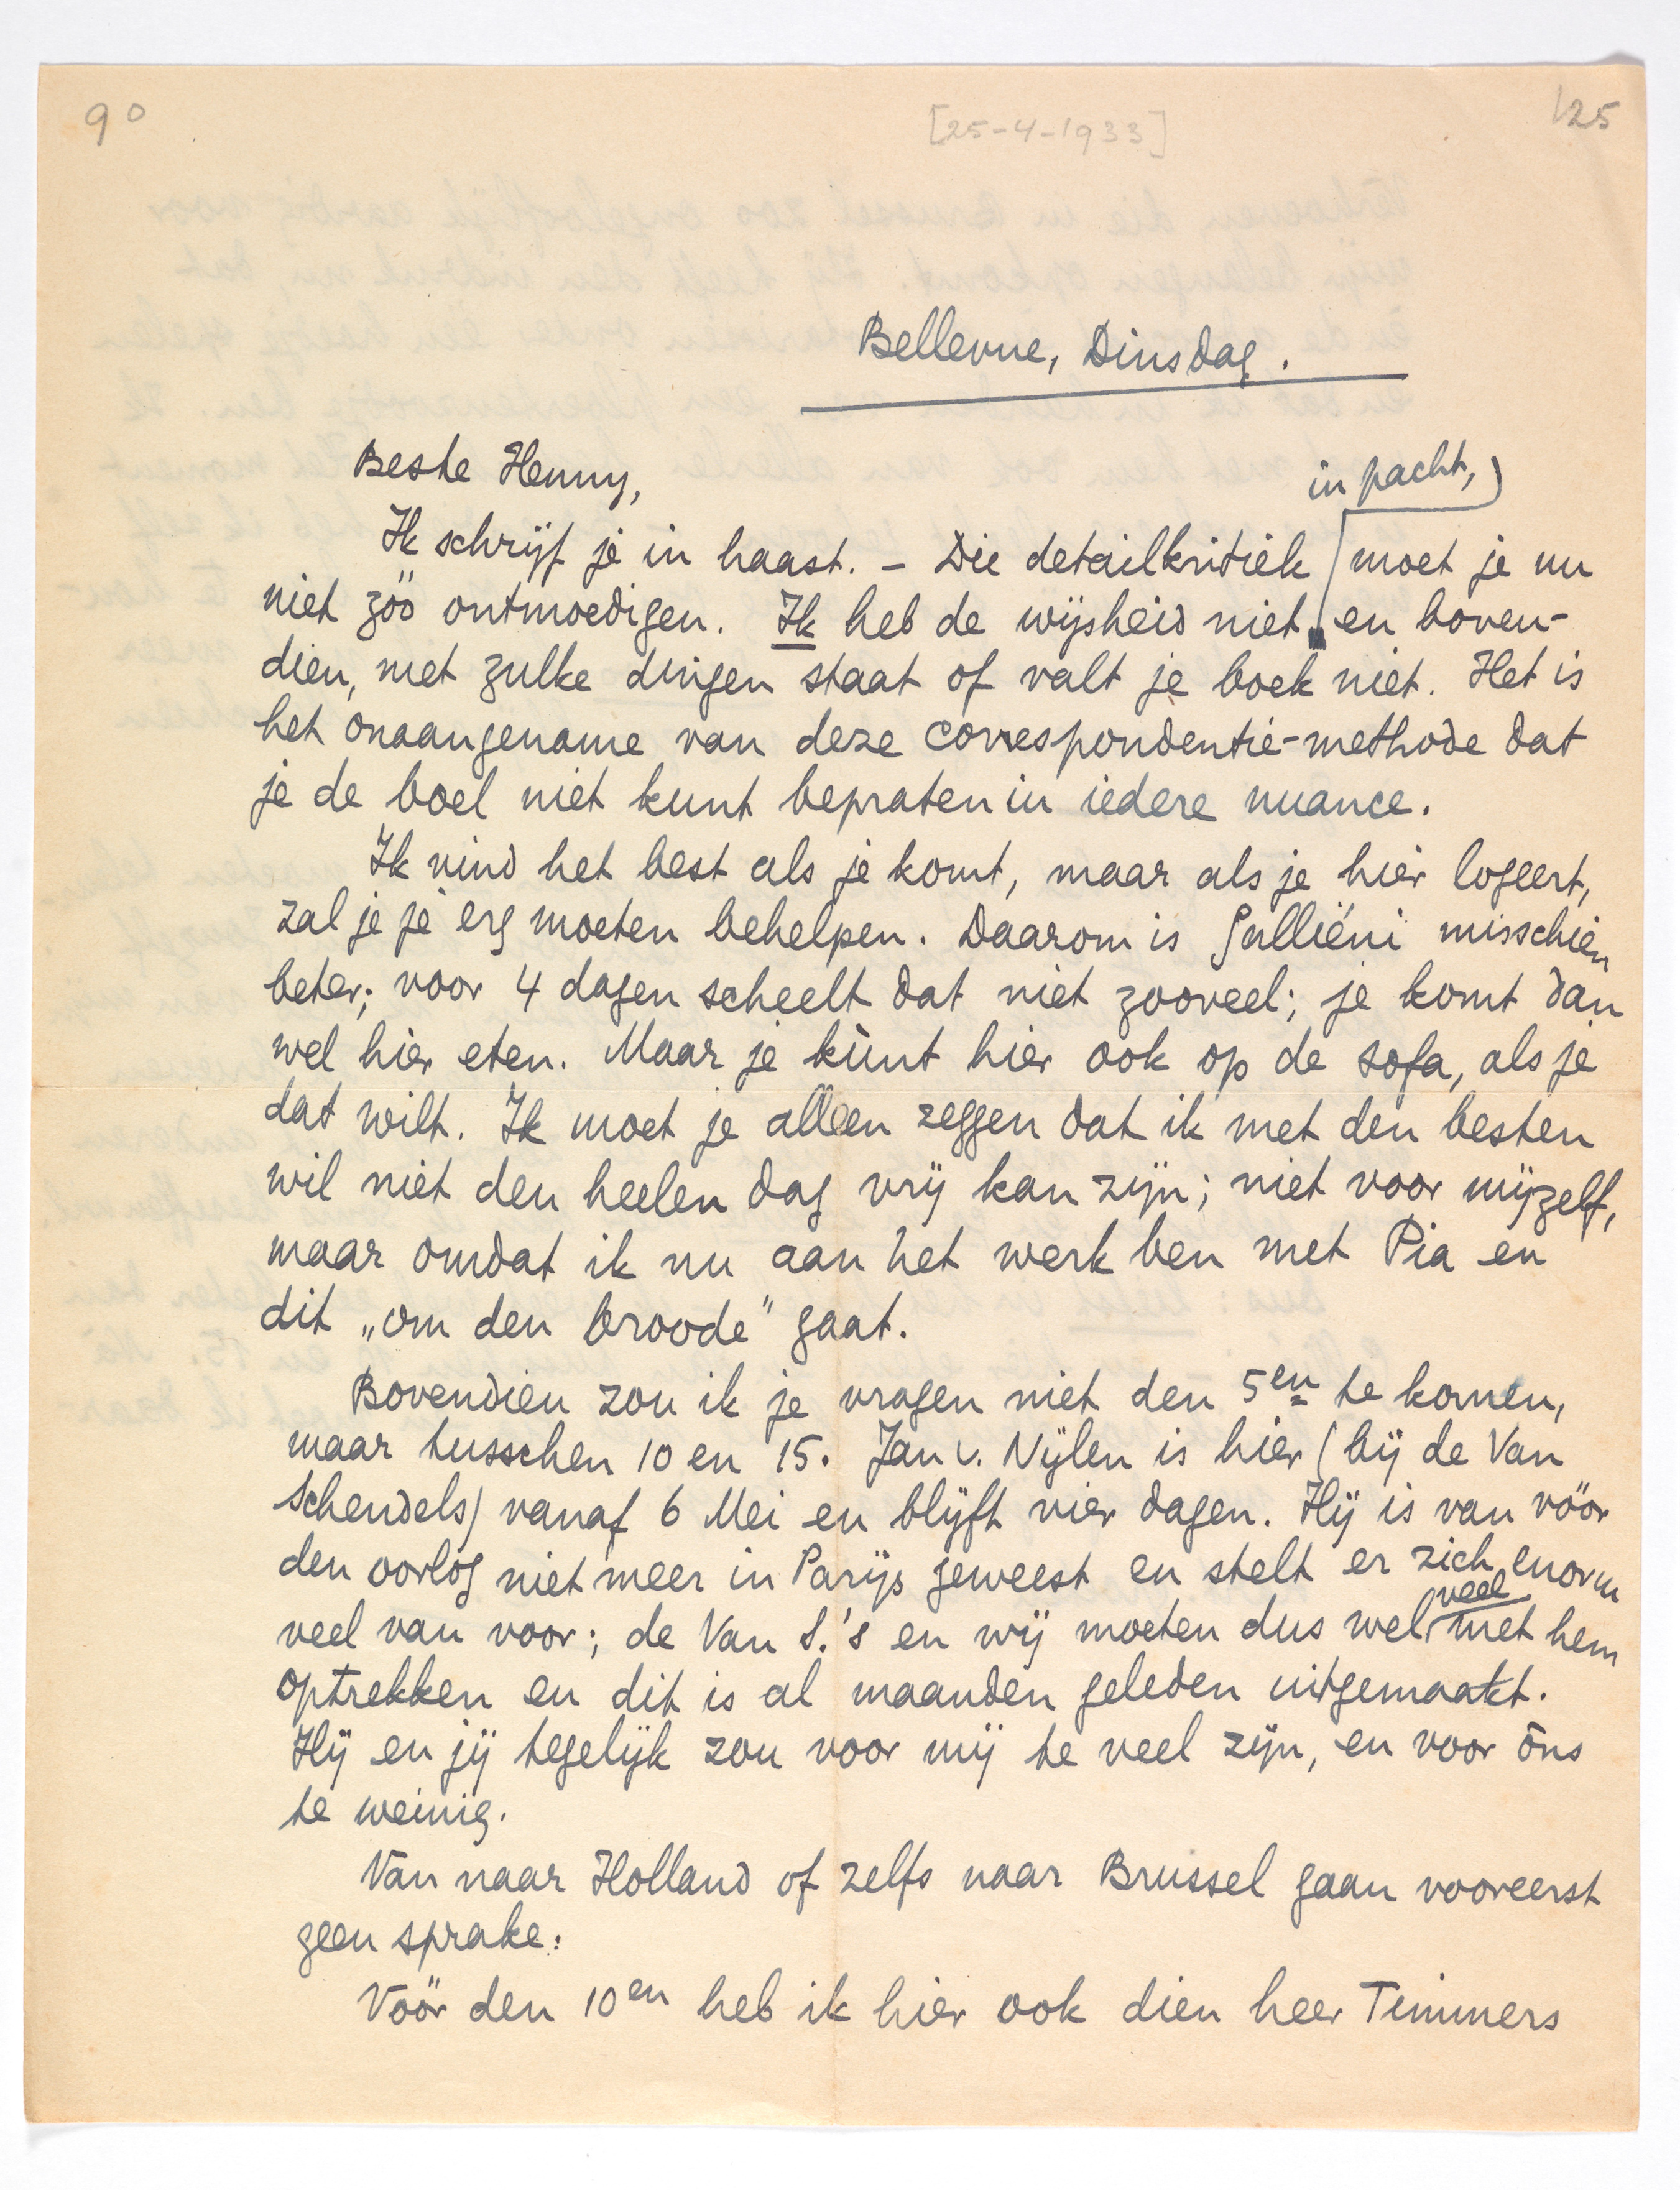 90
[25-4-1933]
125
Bellevue, Dinsdag.
Beste Henny,
in pacht,
Ik schrijf je in haast. – Die detailkritiek moet je nu
niet zóó ontmoedigen. Ik heb de wijsheid niet en boven-
dien, met zulke dingen staat of valt je boek niet. Het is
het onaangename van deze correspondentie-methode dat
je de boel niet kunt bepraten in iedere nuance.
Ik vind het best als je komt, maar als je hier logeert,
zal je je erg moeten behelpen. Daarom is Galliéni misschien
beter; voor 4 dagen scheelt dat niet zooveel; je komt dan
wel hier eten. Maar je kùnt hier ook op de sofa, als je
dat wilt. Ik moet je alleen zeggen dat ik met den besten
wil niet den heelen dag vrij kan zijn; niet voor mijzelf,
maar omdat ik nu aan het werk ben met Pia en
dit „om den broode” gaat.
Bovendien zou ik je vragen niet den 5en te komen,
maar tusschen 10 en 15. Jan v. Nijlen is hier (bij de Van
Schendels) vanaf 6 Mei en blijft vier dagen. Hij is van vóór
den oorlog niet meer in Parijs geweest en stelt er zich enorm
veel
veel van voor; de Van S.'s en wij moeten dus wel met hem
optrekken en dit is al maanden geleden uitgemaakt.
Hij en jij tegelijk zou voor mij te veel zijn, en voor òns
te weinig.
Van naar Holland of zelfs naar Brussel gaan vooreerst
geen sprake.
Vóór den 10en heb ik hier ook dien heer Timmers